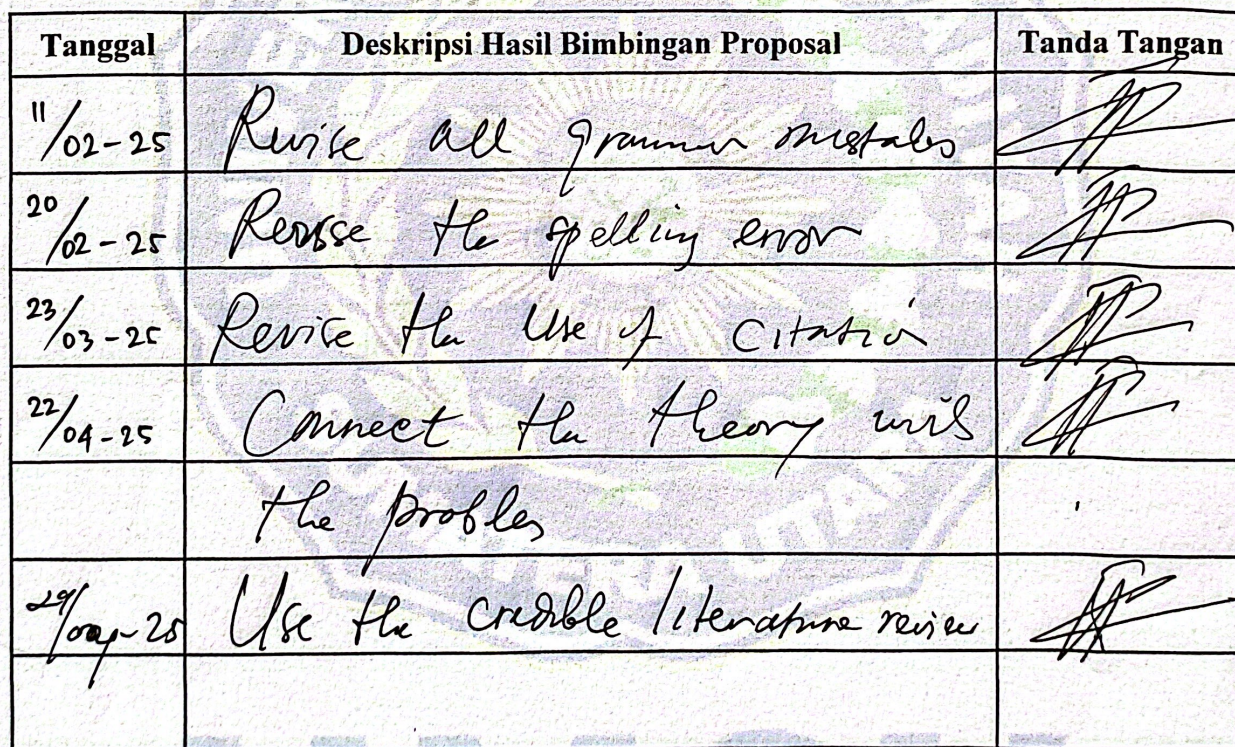 Tanggal Deskripsi Hasil Bimbingan Proposal Tanda Tangan
11/02-25 Revise all grammar mistakes
20/02-25 Revise the spelling error
23/03-25 Revise the use of citation
22/04-25 Connect the theory with
the problem
-25 Use the credible literature review
SUMATERA UTARA